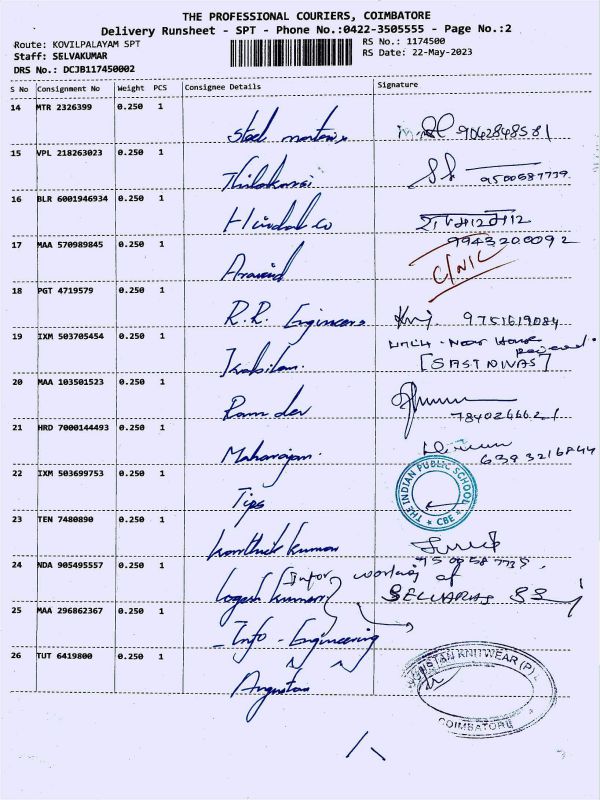 THE PROFESSIONAL COURIERS, COIMBATORE
Delivery Runsheet - SPT - Phone No.:0422-3505555 - Page No.:2
Route: KOVILPALAYAM SPT
RS No.: 1174500
Staff: SELVAKUMAR
RS Date: 22-May-2023
DRS No.: DCJB117450002
S No Consignment No Weight PCS Consignee Details Signature
14 MTR 2326399 0.250 1
Steel 9042848581
15 VPL 218263023 0.250 1
9500587739
16 BLR 6001946934 0.250 1
Hindalco
17 MAA 570989845 0.250 1 9943200092
Aravind C/NIC
18 PGT 4719579 0.250 1
R.R. Engineers 9751619084
19 IXM 503705454 0.250 1 Near House
Kabilan. [SASTNIVAS]
20 MAA 103501523 0.250 1
Ram dev
21 HRD 7000144493 0.250 1
Maharajan. 6393216844
22 IXM 503699753 0.250 1
Tips THE INDIAN PUBLIC SCHOOL * CBE *
23 TEN 7480890 0.250 1
Karthick kumar
24 NDA 905495557 0.250 1 Infor working of
Logesh kumar SELVARAJ
25 MAA 296862367 0.250 1
- Info - Engineering
26 TUT 6419800 0.250 1
KNITWEAR (P)
COIMBATORE